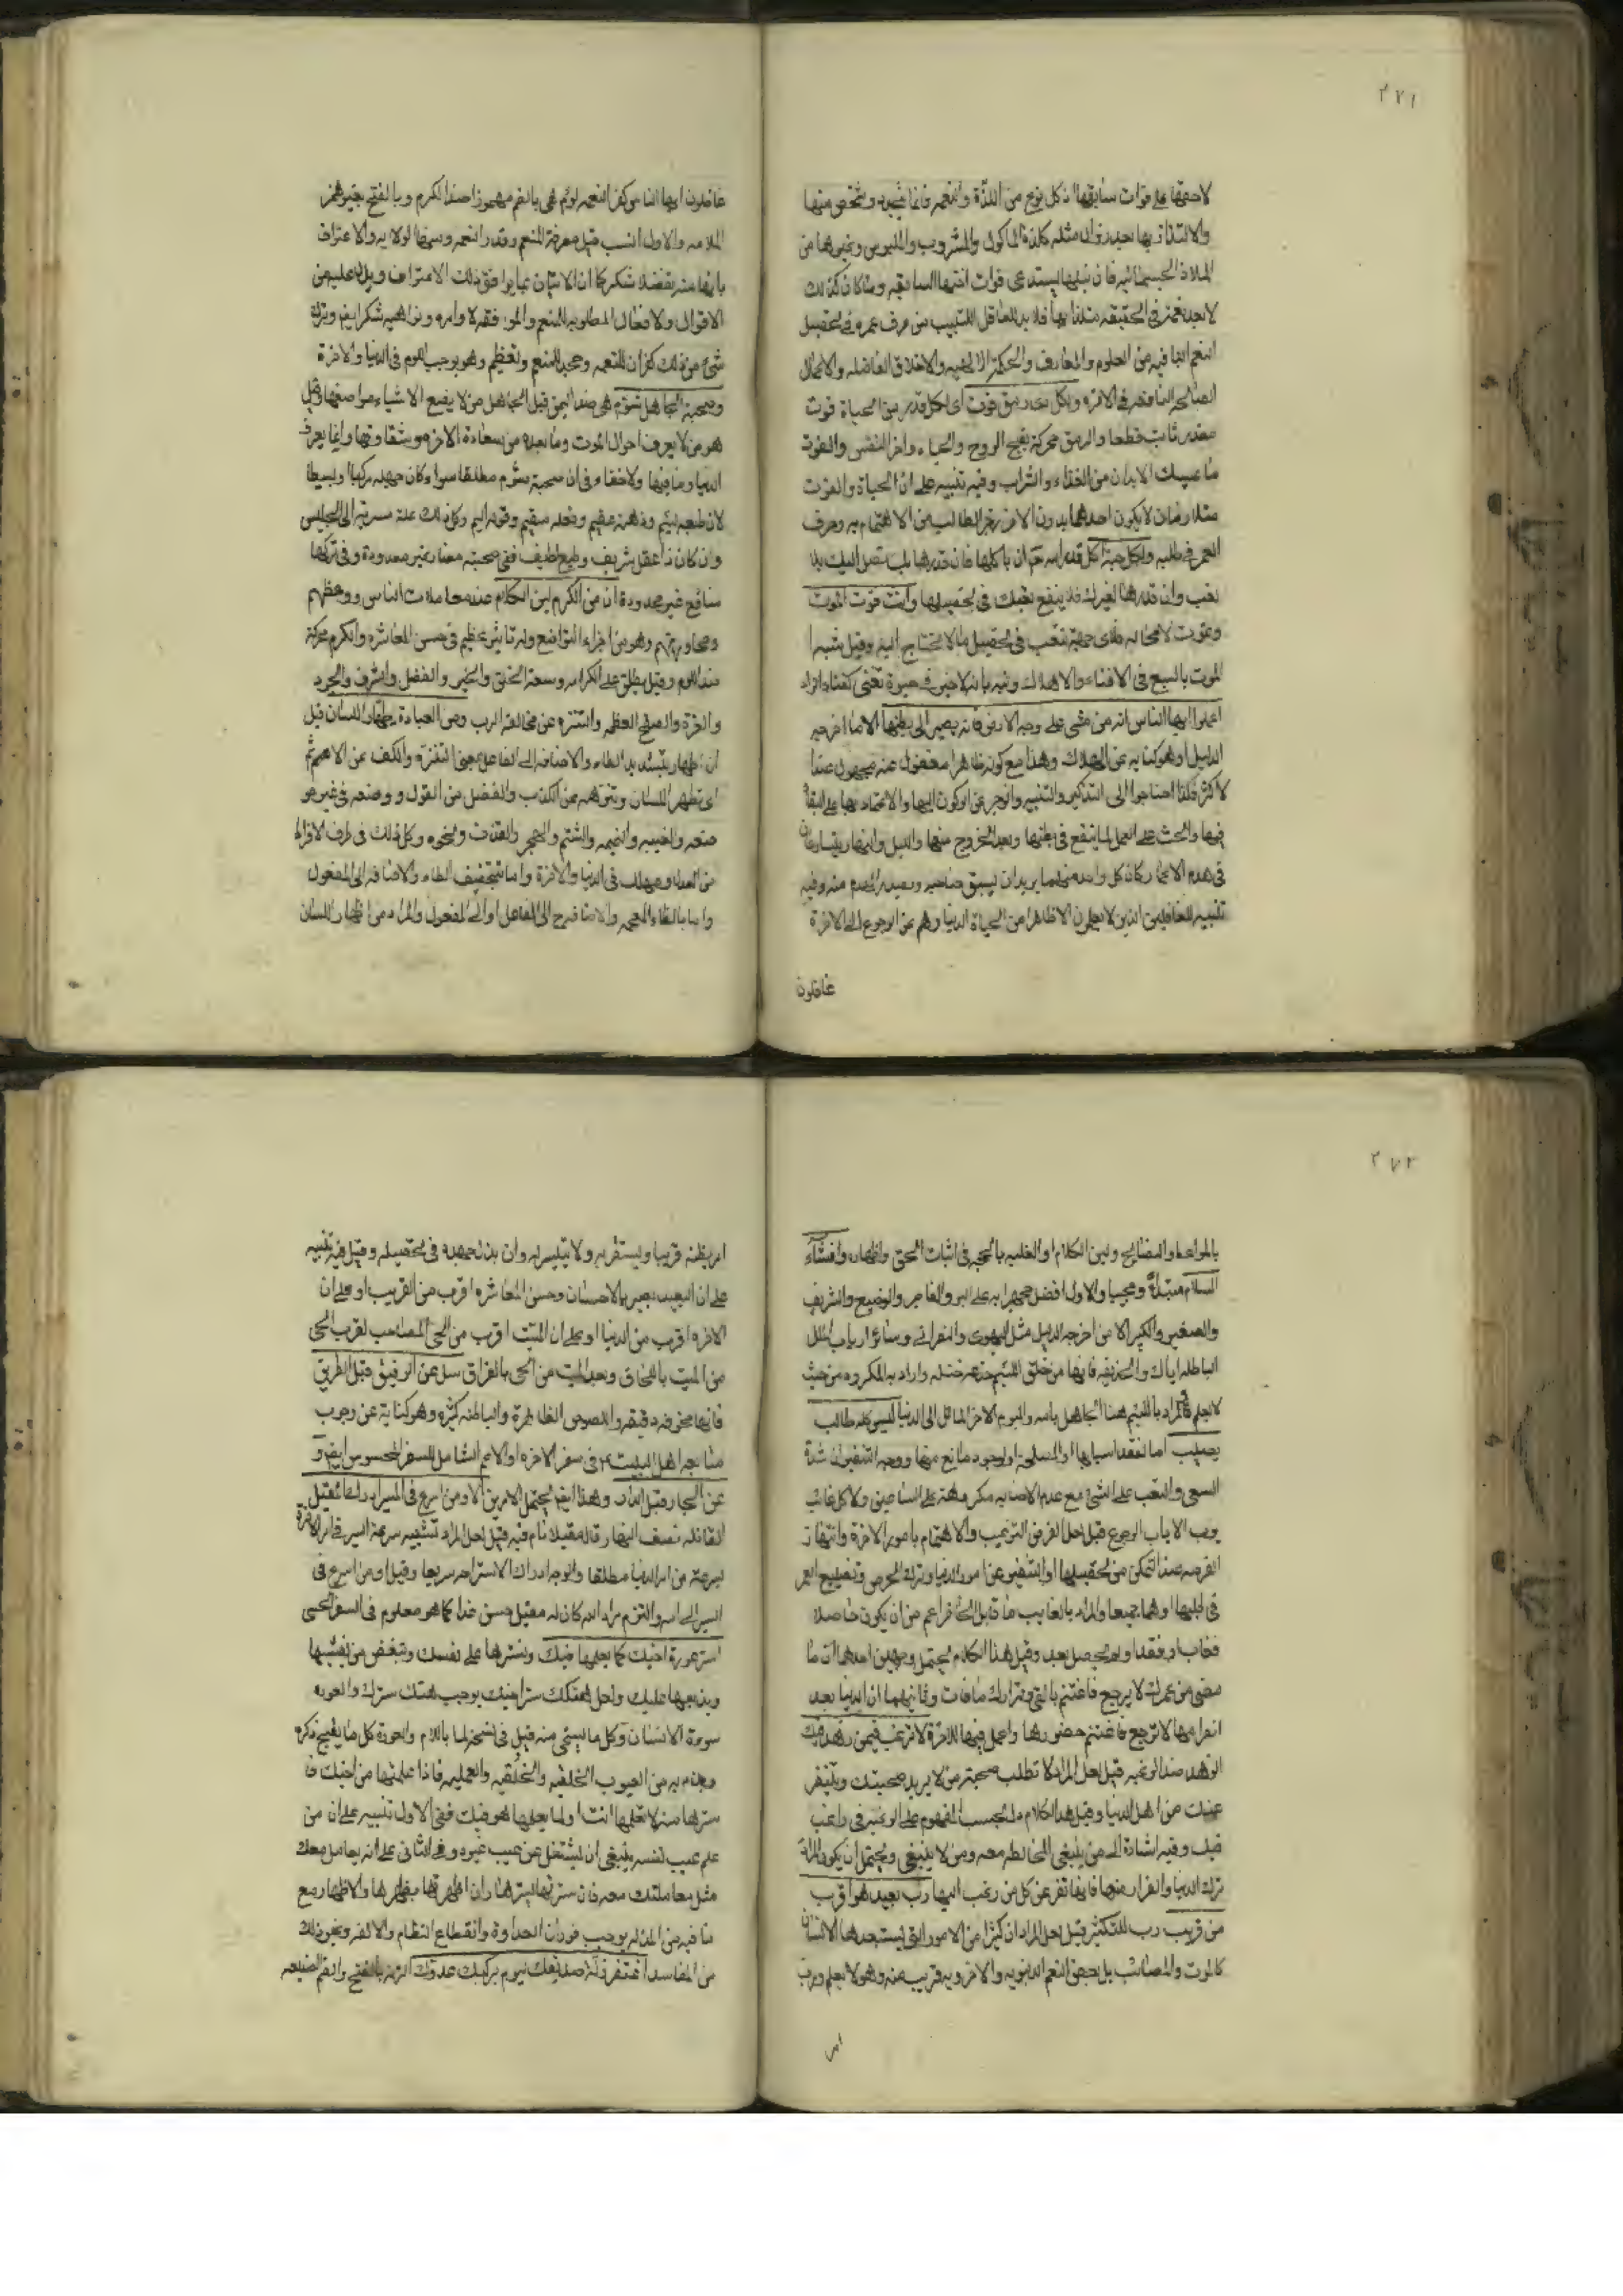 ٢٧١
لاحقها على فوات سابقها اذ كل نوع من اللذة والنعمة فانما يتجدد وشخص منها
والالتذاذ بها بعد زوال مثله كلذة المأكول والمشروب والملبوس وغيرها من
الملاذ الجسمانية فان نيلها يستدعى فوات اختها السابقه وما كان كذلك
لا يعد نعمة في الحقيقه ملتذا بها فلا بد للعاقل اللبيب من صرف عمره في تحصيل
النعم الباقيه من العلوم والمعارف والحكمة الالهيه والاخلاق الفاضله والاعمال
الصالحه النافعه في الاخره ولكل ذى رمق قوت اى لكل قدر من الحياة قوت
مقدر ثابت قطعا والرمق محركة بقية الروح والحياء واخر النفس والقوت
ما يمسك الابدان من الغذاء والشراب وفيه تنبيه على ان الحياة والقوت
متلازمان لا يكون احدهما بدون الاخر زجرا لطالب من الاهتمام به وصرف
العمر في طلبه ولكل حبة آكل قدر الله ان ياكلها فان قدرها لك تصل اليك بلا
تعب وان قدرها لغيرك فلا ينفع تعبك في تحصيلها وانت قوت الموت
وتموت لا محاله فلاى جهة تتعب في تحصيل ما لا تحتاج اليه وقيل شبه
الموت بالسبع في الافناء والاهلاك
اعلموا ايها الناس انه من مشى على وجه الارض فانه يصير الى بطنها الا ما اخرجه
الدليل او هو كنايه عن الهلاك وهذا مع كونه ظاهرا مغفول عنه مجهول عند
الاكثر فلذا احتاجوا الى التذكير والتنبيه والزجر عن الركون اليها والاعتماد بها على البقاء
فيها والحث على العمل لما ينفع في بطنها وبعد الخروج منها والليل والنهار يتسارعان
في هدم الاعمار كان كل واحد منهما يريدان يسبق صاحبه
تنبيه للغافلين الذين لا يعلمون الا ظاهرا من الحياة الدنيا وهم عن الرجوع الى الاخرة
غافلون
غافلون ايها الناس كفر النعمه لؤم هى بالضم مهموزا ضد الكرم وبالفتح بغير همز
الملامه والاول انسب قيل معرفة المنعم وقدر النعمه
بانها منه تفضلا شكر كما ان الاتيان بما يوافق ذلك الاعتراف ويدل عليه من
الاقوال والافعال المطلوبه للمنعم والموافقه لاوامره ونواهيه شكر ايضا وترك
شئ من ذلك كفران للنعمه وجحد للمنعم وتعظيم وهو يوجب اللوم في الدنيا والاخرة
وصحبة الجاهل شؤم هى ضد اليمن قيل الجاهل من لا يضع الاشياء مواضعها وقيل
هو من لا يعرف احوال الموت وما بعده من سعادة الاخره وشقاوتها وانما يعرف
الدنيا وما فيها ولا خفاء في ان صحبته شؤم مطلقا سواء كان جهله مركبا او بسيطا
لان طبعه لئيم وذهنه عقيم وفعله سقيم وقوله اليم وكل ذلك علة مسرية الى الجليس
وان كان ذا عقل شريف وطبع لطيف ففي صحبته مضار غير معدودة وفي تركها
منافع غير محدودة ان من الكرم لين الكلام عند معاملات الناس ووعظهم
ومحاورتهم وهو من اجزاء التواضع وله تاثير عظيم في حسن المعاشره والكرم محركة
ضد اللوم وقيل يطلق على الكرامه وسعة الخلق والخير والفضل والشرف والجود
والعزة والصفح العظمه والتنزه عن مخالفة الرب ومن العبادة اظهار اللسان قيل
ان اظهار بتشديد الطاء والاضافه الى الفاعل بمعنى التنزه والكف عن الاثم ثم
اى تطهر اللسان وتنزهه عن الكذب والفضل من القول ووضعه في غير مو
ضعه والغيبه والنميمه والشتم والهجر والقذف ونحوه وكل ذلك في طرف الافراط
من العدل ومهلك في الدنيا والاخرة واما بتخفيف الطاء والاضافه الى المفعول
واما بالظاء المعجمه والاضافه الى الفاعل او الى المفعول والمراد من اظهار اللسان
٢٧٢
بالمواعظ والنصايح ولين الكلام او الغلبه بالحجه في اثبات الحق واظهاره وافشاء
السلام مبتدأ ومجيبا والاول افضل جهرا به على البر والفاجر والوضيع والشريف
والصغير والكبير الا من اخرجه الدليل مثل اليهودى والنصرانى وسائر ارباب الملل
الباطله اياك والخديعه فانها من خلق اللئيم خدعه ختله واراد به المكروه من حيث
لا يعلم والمراد باللئيم هنا الجاهل بالله واليوم الاخر المائل الى الدنيا ليس كل طالب
يصيب اما لفقد اسبابها او لمصلحة او لوجود مانع منها ووجه التنفير ان شدة
السعى والتعب على الشئ مع عدم الاصابه مكروهة على الساعين ولا كل غائب
يوب الاياب الرجوع قيل لعل الغرض الترغيب والاهتمام بامور الاخرة وانتهاز
الفرصه عند التمكن من تحصيلها او التنفير عن امور الدنيا وترك الحرص وتضييع العمر
في طلبها او هما جميعا والمراد بالغايب ما قابل الحاضر اعم من ان يكون حاصلا
فغاب وفقد او لم يحصل بعد وقيل هذا الكلام يحتمل وجهين احدهما ان ما
مضى من عمرك لا يرجع فاغتنم بالباقي وتدارك ما فات وثانيهما ان الدنيا بعد
انصرامها لا ترجع فاغتنم حضورها واعمل فيها للاخرة لا ترغب فيمن زهد فيك
الزهد ضد الرغبه قيل لعل المراد لا تطلب صحبة من لا يريد صحبتك ويتنفر
عنك من اهل الدنيا وقيل هذا الكلام دل بحسب المفهوم على الرغبه في راغب
فيك وفيه اشارة الى من ينبغى المخالطه معه ومن لا ينبغى ويحتمل ان يكون المراد
ترك الدنيا والفرار منها فانها تفر عن كل من رغب اليها رب بعيد هو اقرب
من قريب رب للتكثير قيل لعل المراد ان كثيرا من الامور التي يستبعدها الانسان
كالموت والمصائب بل بعض النعم الدنيويه والاخرويه قريب منه وهو لا يعلم ورب
امر
امر يظنه قريبا ويستقربه ولا يتيسر له وان بذل جهده في تحصيله وقيل فيه تنبيه
على ان البعيد يصير بالاحسان وحسن المعاشره اقرب من القريب او على ان
الاخره اقرب من الدنيا او على ان الميت اقرب من الحى المصاحب لقرب الحى
من الميت باللحاق وبعد الميت من الحى بالفراق سل عن الرفيق قبل الطريق
فانها مخوفه دقيقه واللصوص الظاهرة والباطنه كثيره وهو كناية عن وجوب
متابعة اهل البيت ع في سفر الاخره او الاعم الشامل للسفر المحسوس ايضا و
عن الجار قبل الدار وهذا ايضا يحتمل الامرين الا ومن اسرع في المسير ادركه المقيل
القائله نصف النهار قال مقيلا نام فيه قيل لعل المراد تشبيه سرعة السير في امر الاخرة
بسرعة من امر الدنيا مطلقا والوجه ادراك الاستراحه سريعا وقيل او من اسرع في
السير الى الله والتزم مراد الله كان له مقيل حسن غدا كما هو معلوم في السفر الحسى
استر عورة اخيك كما يعلمها فيك وتسترها على نفسك وتبغض من يفشيها
ويذيعها عليك ولعل هتكك ستر اخيك يوجب هتك سترك والعوره
سوءة الانسان وكل ما يستحى منه قيل في تفسيرها باللام والعورة كل ما يقبح ذكره
ويذم به من العيوب الخلقيه والخلقيه والعمليه فاذا علمتها من اخيك فا
سترها منه لما تعلمها انت او لما يعلمها هو فيك ففي الاول تنبيه على ان من
علم عيب نفسه ينبغى ان يشتغل عن عيب غيره وفي الثانى على انه يعامل معك
مثل معاملتك معه فان سترتها يسترها وان اظهرتها يظهرها والاظهار مع
ما فيه من المذله يوجب فوران العداوة وانقطاع النظام والالفه ونحو ذلك
من المفاسد اغتفر زلة صديقك ليوم يركبك عدوك الزله بالفتح والضم الصنيعه